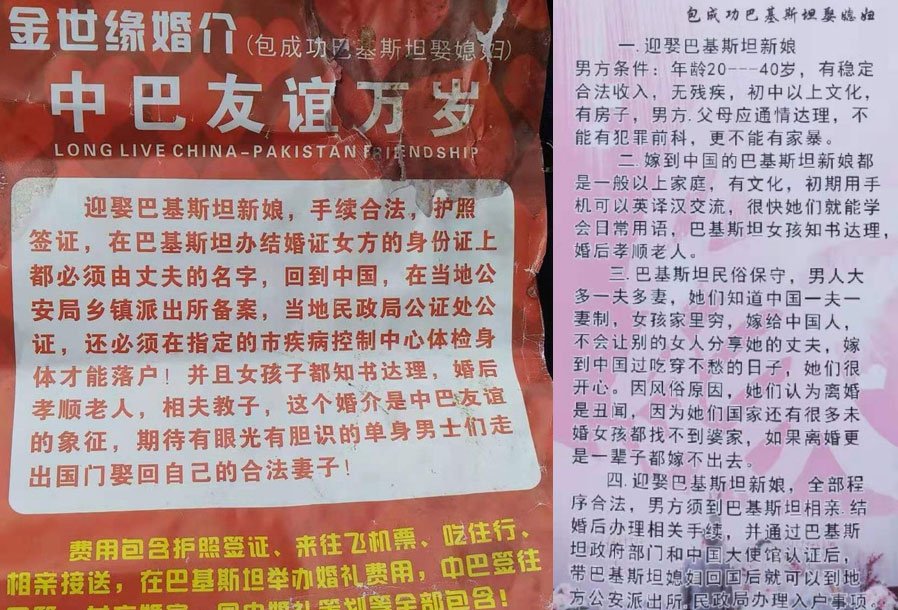 金世缘婚介(包成功巴基斯坦娶媳妇)
中巴友谊万岁
LONG LIVE CHINA-PAKISTAN FRIENDSHIP
迎娶巴基斯坦新娘，手续合法，护照
签证，在巴基斯坦办结婚证女方的身份证上
都必须由丈夫的名字，回到中国，在当地公
安局乡镇派出所备案，当地民政局公证处公
证，还必须在指定的市疾病控制中心体检身
体才能落户！并且女孩子都知书达理，婚后
孝顺老人，相夫教子，这个婚介是中巴友谊
的象征，期待有眼光有胆识的单身男士们走
出国门娶回自己的合法妻子！
费用包含护照签证、来往飞机票、吃住行、
相亲接送，在巴基斯坦举办婚礼费用，中巴签往
等全部包含！
包成功巴基斯坦娶媳妇
一.迎娶巴基斯坦新娘
男方条件：年龄20---40岁，有稳定
合法收入，无残疾，初中以上文化，
有房子，男方.父母应通情达理，不
能有犯罪前科，更不能有家暴。
二.嫁到中国的巴基斯坦新娘都
是一般以上家庭，有文化，初期用手
机可以英译汉交流，很快她们就能学
会日常用语，巴基斯坦女孩知书达理，
婚后孝顺老人。
三.巴基斯坦民俗保守，男人大
多一夫多妻，她们知道中国一夫一
妻制，女孩家里穷，嫁给中国人，
不会让别的女人分享她的丈夫，嫁
到中国过吃穿不愁的日子，她们很
开心。因风俗原因，她们认为离婚
是丑闻，因为她们国家还有很多未
婚女孩都找不到婆家，如果离婚更
是一辈子都嫁不出去。
四.迎娶巴基斯坦新娘，全部程
序合法，男方须到巴基斯坦相亲.结
婚后办理相关手续，并通过巴基斯
坦政府部门和中国大使馆认证后，
带巴基斯坦媳妇回国后就可以到地
方公安派出所.民政局办理入户事项